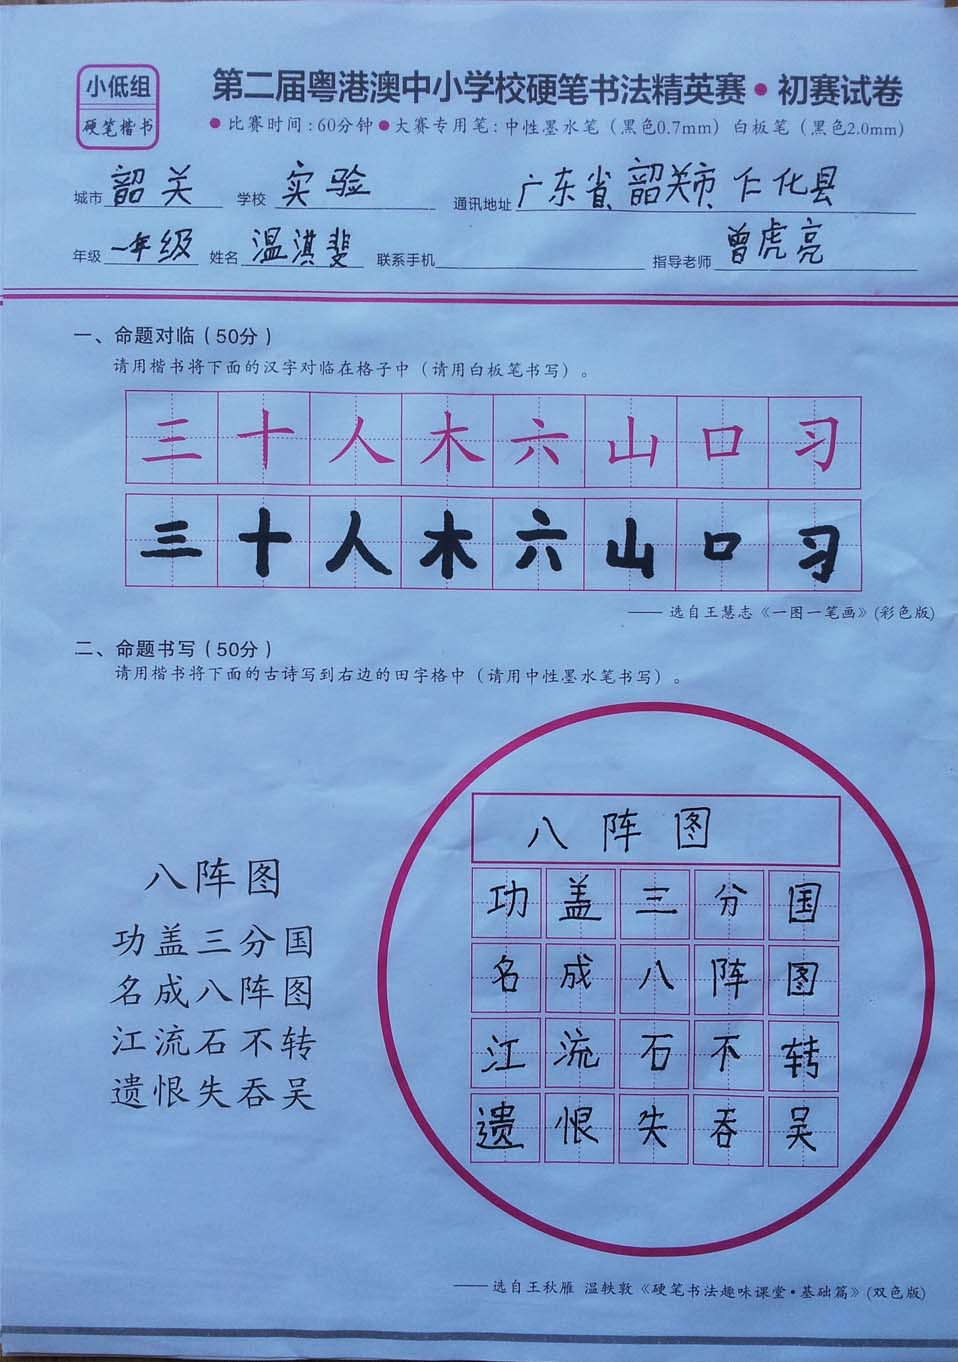 小低组
硬笔楷书
第二届粤港澳中小学校硬笔书法精英赛·初赛试卷
●比赛时间:60分钟●大赛专用笔:中性墨水笔（黑色0.7mm）白板笔（黑色2.0mm）
城市 韶关 学校 实验 通讯地址 广东省韶关市仁化县
年级 一年级 姓名 温淇斐 联系手机 指导老师 曾虎亮
一、命题对临（50分）
请用楷书将下面的汉字对临在格子中（请用白板笔书写）。
三十人木六山口习
三十人木六山口习
——选自王慧志《一图一笔画》(彩色版)
二、命题书写（50分）
请用楷书将下面的古诗写到右边的田字格中（请用中性墨水笔书写）。
八阵图
功盖三分国
名成八阵图
江流石不转
遗恨失吞吴
八阵图
功盖三分国
名成八阵图
江流石不转
遗恨失吞吴
——选自王秋雁 温轶敦《硬笔书法趣味课堂·基础篇》(双色版)